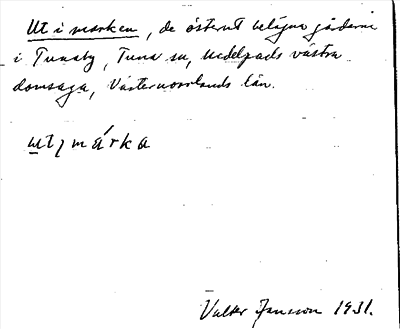 Ut i marken, de österut belägna gärdena
i Tunaby, Tuna sn, Medelpads västra
domsaga, Västernorrlands län.
ut ɩ márka
Valter Jansson 1931.